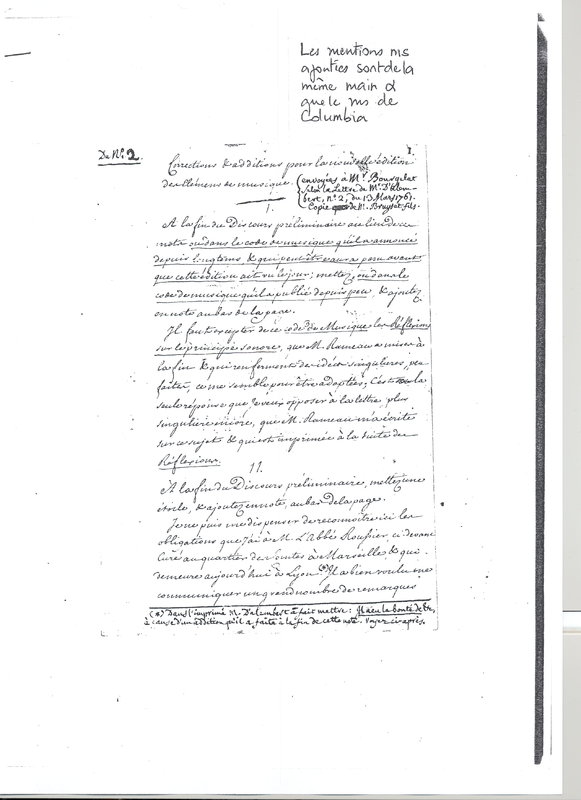 Les mentions ms
ajoutées sont de la
même main
que le ms de
Columbia
Du N.º 2.
1.
Corrections & additions pour la nouvelle édition
des Elémens de musique. (envoyées à M.r Bourgelat
selon la Lettre de M.r D'Alem-
bert, n.º 2, du 13 Mars 1761.
Copie de M. Bruyset fils.
I.
A la fin du Discours préliminaire au lieu de ce
mots ou dans le code de musique qu'il a annoncé
depuis longtems, & qui peut être aura paru avant
que cette édition ait vu le jour; mettez, ou dans le
code de musique qu'il a publié depuis peu, & ajoutez
en note au bas de la page.
Il faut excepter de ce code de Musique les Réflexions
sur le principe sonore, que M. Rameau a mises à
la fin & qui renferment des idées singulieres, peu
faites, ce me semble pour être adoptées; C'est la
seule réponse que je veux opposer à la lettre, plus
singuliere encore, que M. Rameau m'a écrite
sur ce sujet & qui est imprimée à la suite des
Réflexions.
II.
A la fin du Discours préliminaire, mettez une
étoile, & ajoutez en note, au bas de la page.
Je ne puis me dispenser de reconnoître ici les
obligations que j'ai à M. L'Abbé Roussier, ci devant
Curé au quartier des à Marseilles & qui
demeure aujourd'hui à Lyon (*) Il a bien voulu me
communiquer un grand nombre de remarques
(*) Dans l'imprimé M. Dalembert a fait mettre: Il a eu la bonté de &c,
à cause d'un addition qu'il a faite à la fin de cette note. Voyez ci-après.